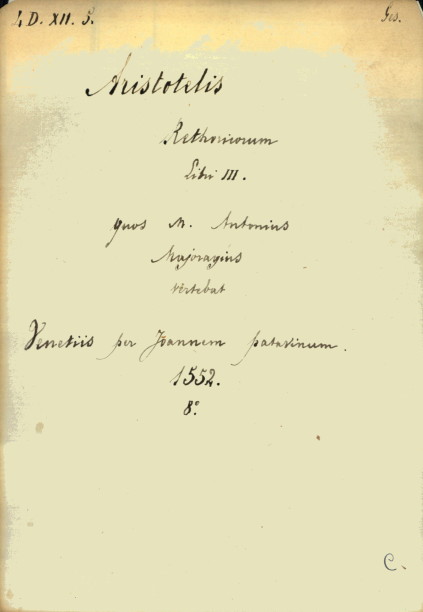 4 D. XII. 5. Ges.
Aristotelis
Rethoricorum
Libri III.
quos M. Antonius
Majoragius
vertebat
Venetiis per Joannem patavinum.
1552.
8°
C.